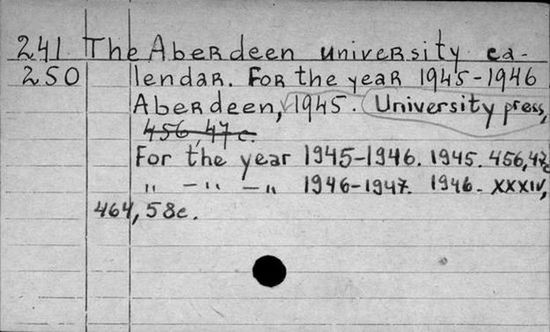 241 The Aberdeen university ca-
250 lendar. For the year 1945-1946
Aberdeen, 1945. University press,
456, 47 c.
For the year 1945-1946. 1945. 456, 47c
" - " - " 1946-1947. 1946. XXXIV,
464, 58c.